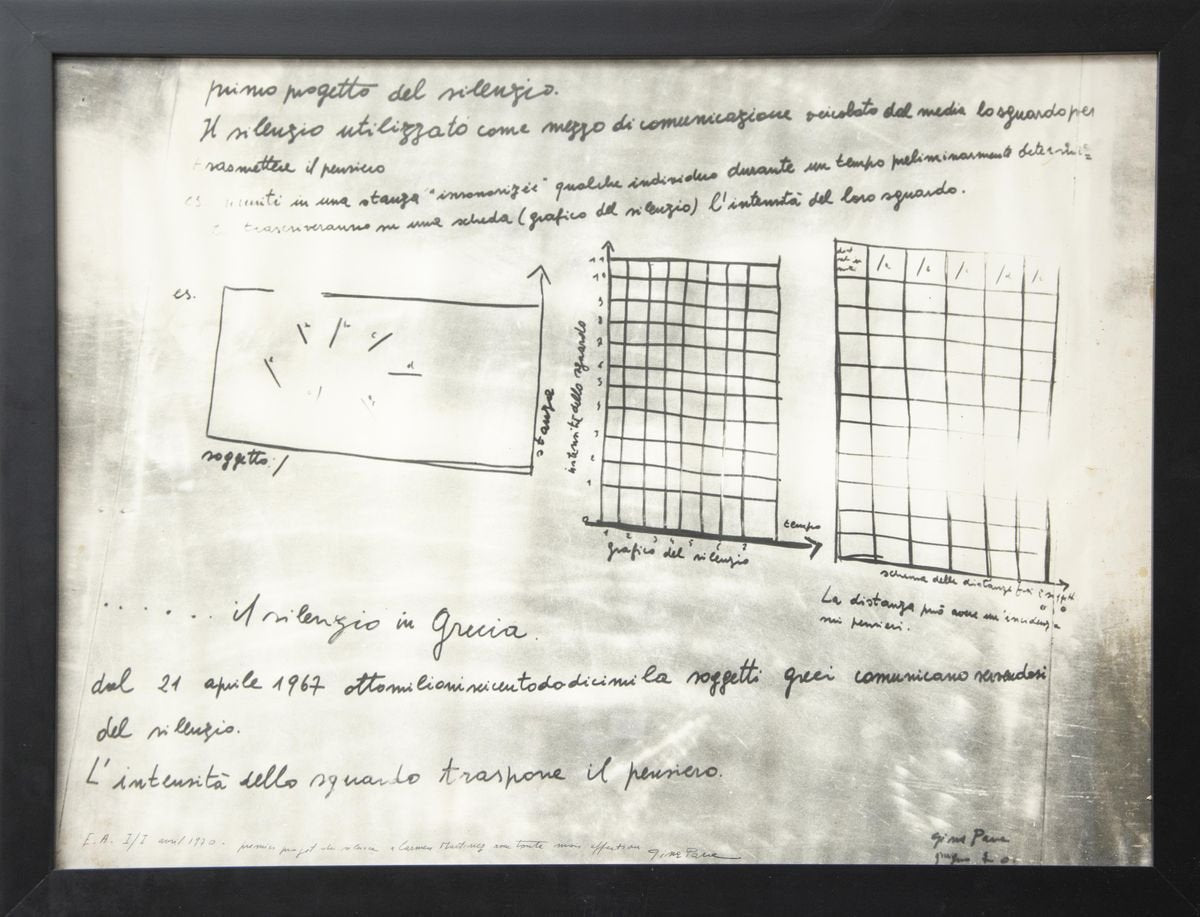 primo progetto del silenzio.
Il silenzio utilizzato come mezzo di comunicazione veicolato dal media lo sguardo per
trasmettere il pensiero
es riuniti in una stanza "insonorizée" qualche individuo durante un tempo preliminarmente determi=
trascriveranno su una scheda (grafico del silenzio) l'intensità del loro sguardo.
es.
d
soggetto /
stanza
intensità dello sguardo
11
10
9
8
7
6
5
3
2
1
0
tempo
1 2 3 4 5 6 7
grafico del silenzio
schema delle distanze
La distanza può avere un'incidenza
sui pensieri.
...... il silenzio in Grecia.
dal 21 aprile 1967 ottomilioniseicentododicimila soggetti greci comunicano servendosi
del silenzio.
L'intensità dello sguardo traspone il pensiero.
E.A. I/I avril 1970. premier projet du silence a Carmen Martinez avec toute mon affection Gina Pane
Gina Pane
giugno